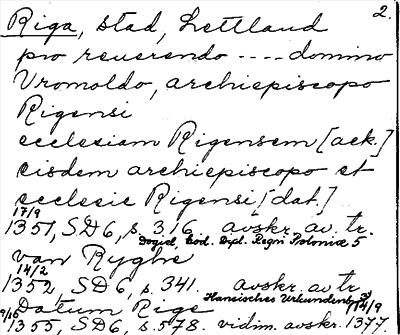 2.
Riga, stad, Lettland
pro reuerendo ---- domino
Vromoldo, archiepiscopo
Rigensi
ecclesiam Rigensem [ack.]
eisdem archiepiscopo et
ecclesie Rigensi [dat.]
17/9
1351, SD6, s. 316 avskr. av tr.
Dogiel, Cod. Dipl. Regni Poloniæ 5
van Ryghe
14/2
1352, SD6, s. 341. avskr. av tr
Hansisches Urkundenb. 3
Datum Rige 14/9
9/16
1355, SD6, s. 578. vidim. avskr. 1377.